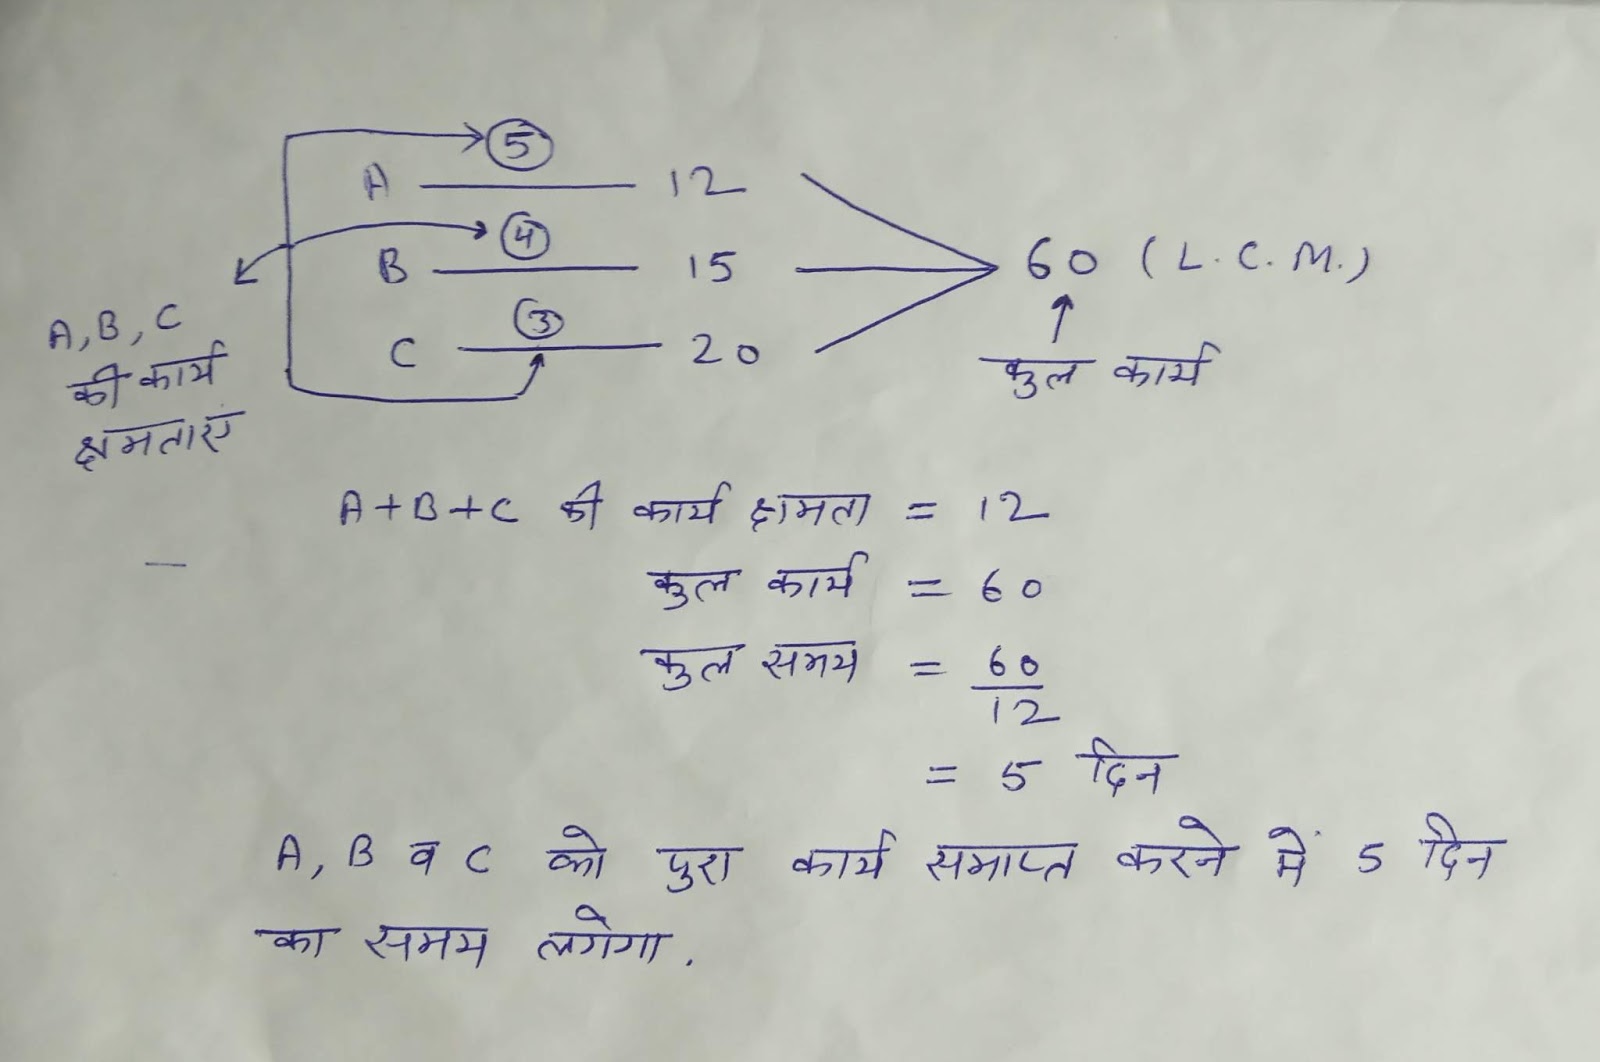 5
A 12
4
B 15 60 (L.C.M.)
3
C 20
कुल कार्य
A, B, C
की कार्य
क्षमताएं
A+B+C की कार्य क्षमता = 12
कुल कार्य = 60
कुल समय = 60
12
= 5 दिन
A, B व C को पुरा कार्य समाप्त करने में 5 दिन
का समय लगेगा.